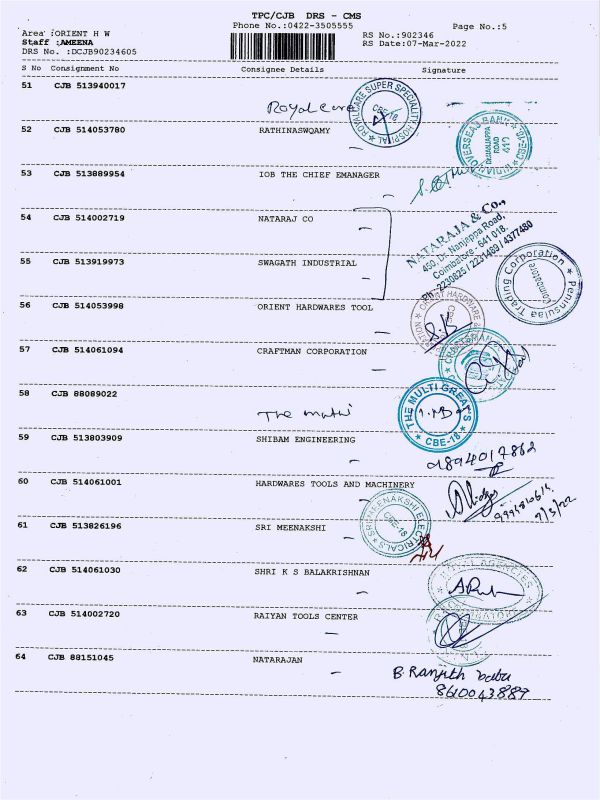 TPC/CJB DRS - CMS
Phone No.:0422-3505555
Page No.:5
Area :ORIENT H W
Staff :AMEENA
DRS No. :DCJB90234605
RS No.:902346
RS Date:07-Mar-2022
S No Consignment No Consignee Details Signature
51 CJB 513940017
Royal care
ROYALCARE SUPER SPECIALITY HOSPITAL
CBE-18
52 CJB 514053780 RATHINASWQAMY
INDIAN OVERSEAS BANK
DR.NANJAPPA
ROAD
410
CBE-18
53 CJB 513889954 IOB THE CHIEF EMANAGER
54 CJB 514002719 NATARAJ CO
NATARAJA & Co.,
450, Dr. Nanjappa Road,
Coimbatore - 641 018.
Ph: 2230825 / 2231469 / 4377480
55 CJB 513919973 SWAGATH INDUSTRIAL
Peninsulaa Trading Corporation
Coimbatore
56 CJB 514053998 ORIENT HARDWARES TOOL
ORIENT HARDWARE &
57 CJB 514061094 CRAFTMAN CORPORATION
58 CJB 88089022
THE MULTI GREATS
CBE-18
59 CJB 513803909 SHIBAM ENGINEERING
9894017862
60 CJB 514061001 HARDWARES TOOLS AND MACHINERY
7/3/22
61 CJB 513826196 SRI MEENAKSHI
SRI MEENAKSHI ELECTRICALS
CBE-18
62 CJB 514061030 SHRI K S BALAKRISHNAN
AGENCIES
63 CJB 514002720 RAIYAN TOOLS CENTER
64 CJB 88151045 NATARAJAN
B. Ranjith babu
8610043889